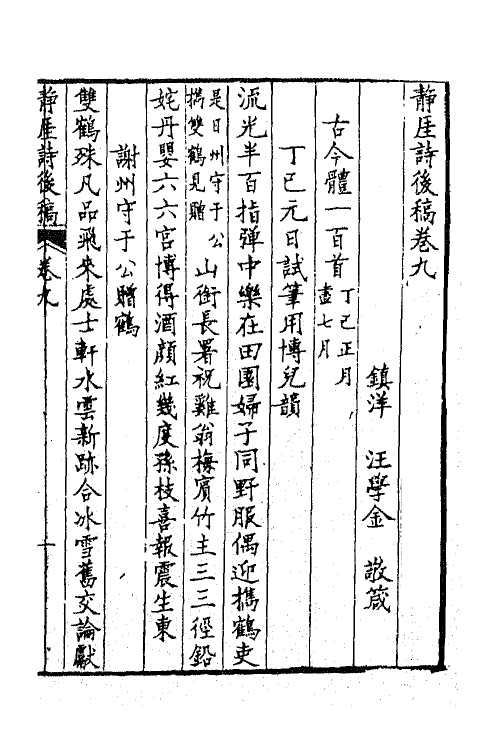 靜厓詩後稿卷九
鎮洋 汪學金 敬箴
古今體一百首 丁巳正月盡七月
丁巳元日試筆用博兒韻
流光半百指彈中樂在田園婦子同野服偶迎攜鶴吏
是日州守于公攜雙鶴見贈 山銜長署祝雞翁梅賓竹主三三徑鉛
姹丹嬰六六宮博得酒顏紅幾度孫枝喜報震生東
謝州守于公贈鶴
雙鶴殊凡品飛來處士軒水雲新跡合冰雪舊交論獻
靜厓詩後稿 卷九 一